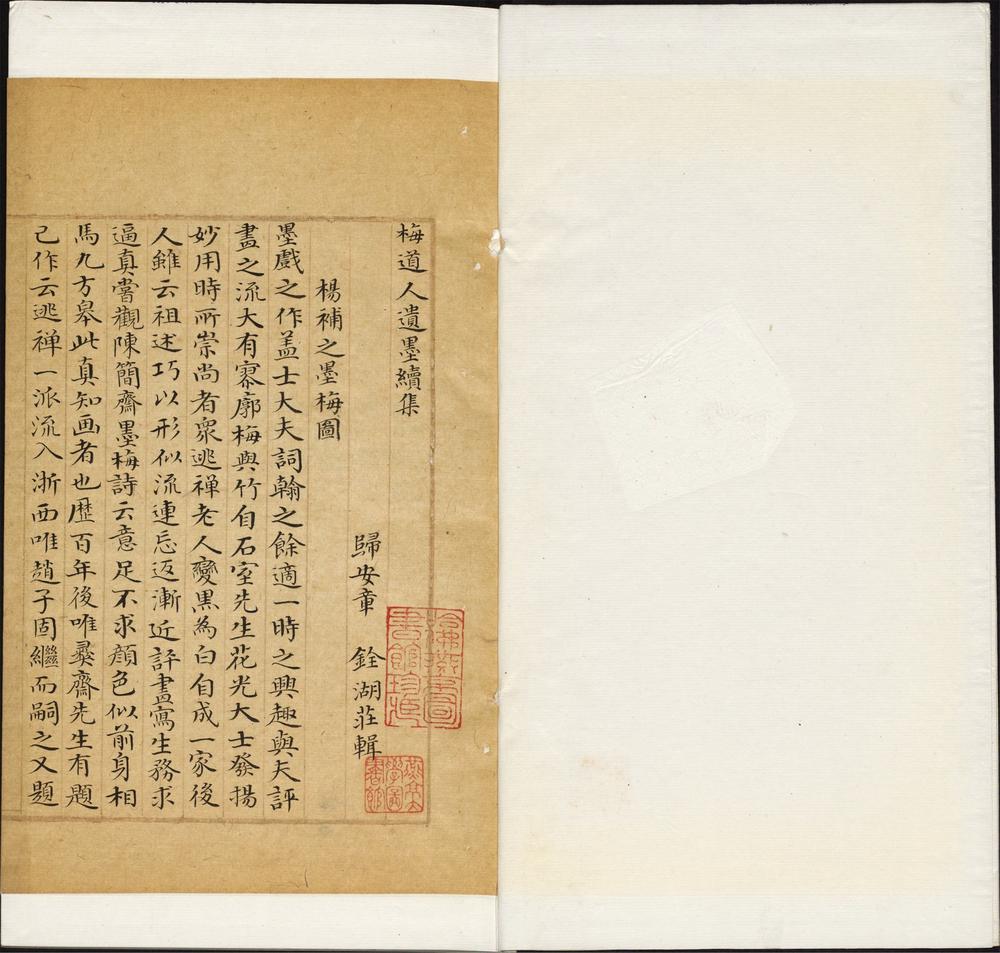 梅道人遺墨續集
歸安章 銓湖莊輯
楊補之墨梅圖
墨戲之作盖士大夫詞翰之餘適一時之興趣與夫評
畫之流大有寥廓梅與竹自石室先生花光大士發揚
妙用時所崇尚者衆逃禅老人變黑為白自成一家後
人雖云祖述巧以形似流連忘返漸近評畫寫生務求
逼真嘗觀陳簡齋墨梅詩云意足不求顔色似前身相
馬九方皋此真知画者也歷百年後唯彛齋先生有題
己作云逃禅一派流入浙西唯趙子固繼而嗣之又題
哈佛燕京圖
書館珍藏
燕京大
學圖
書館